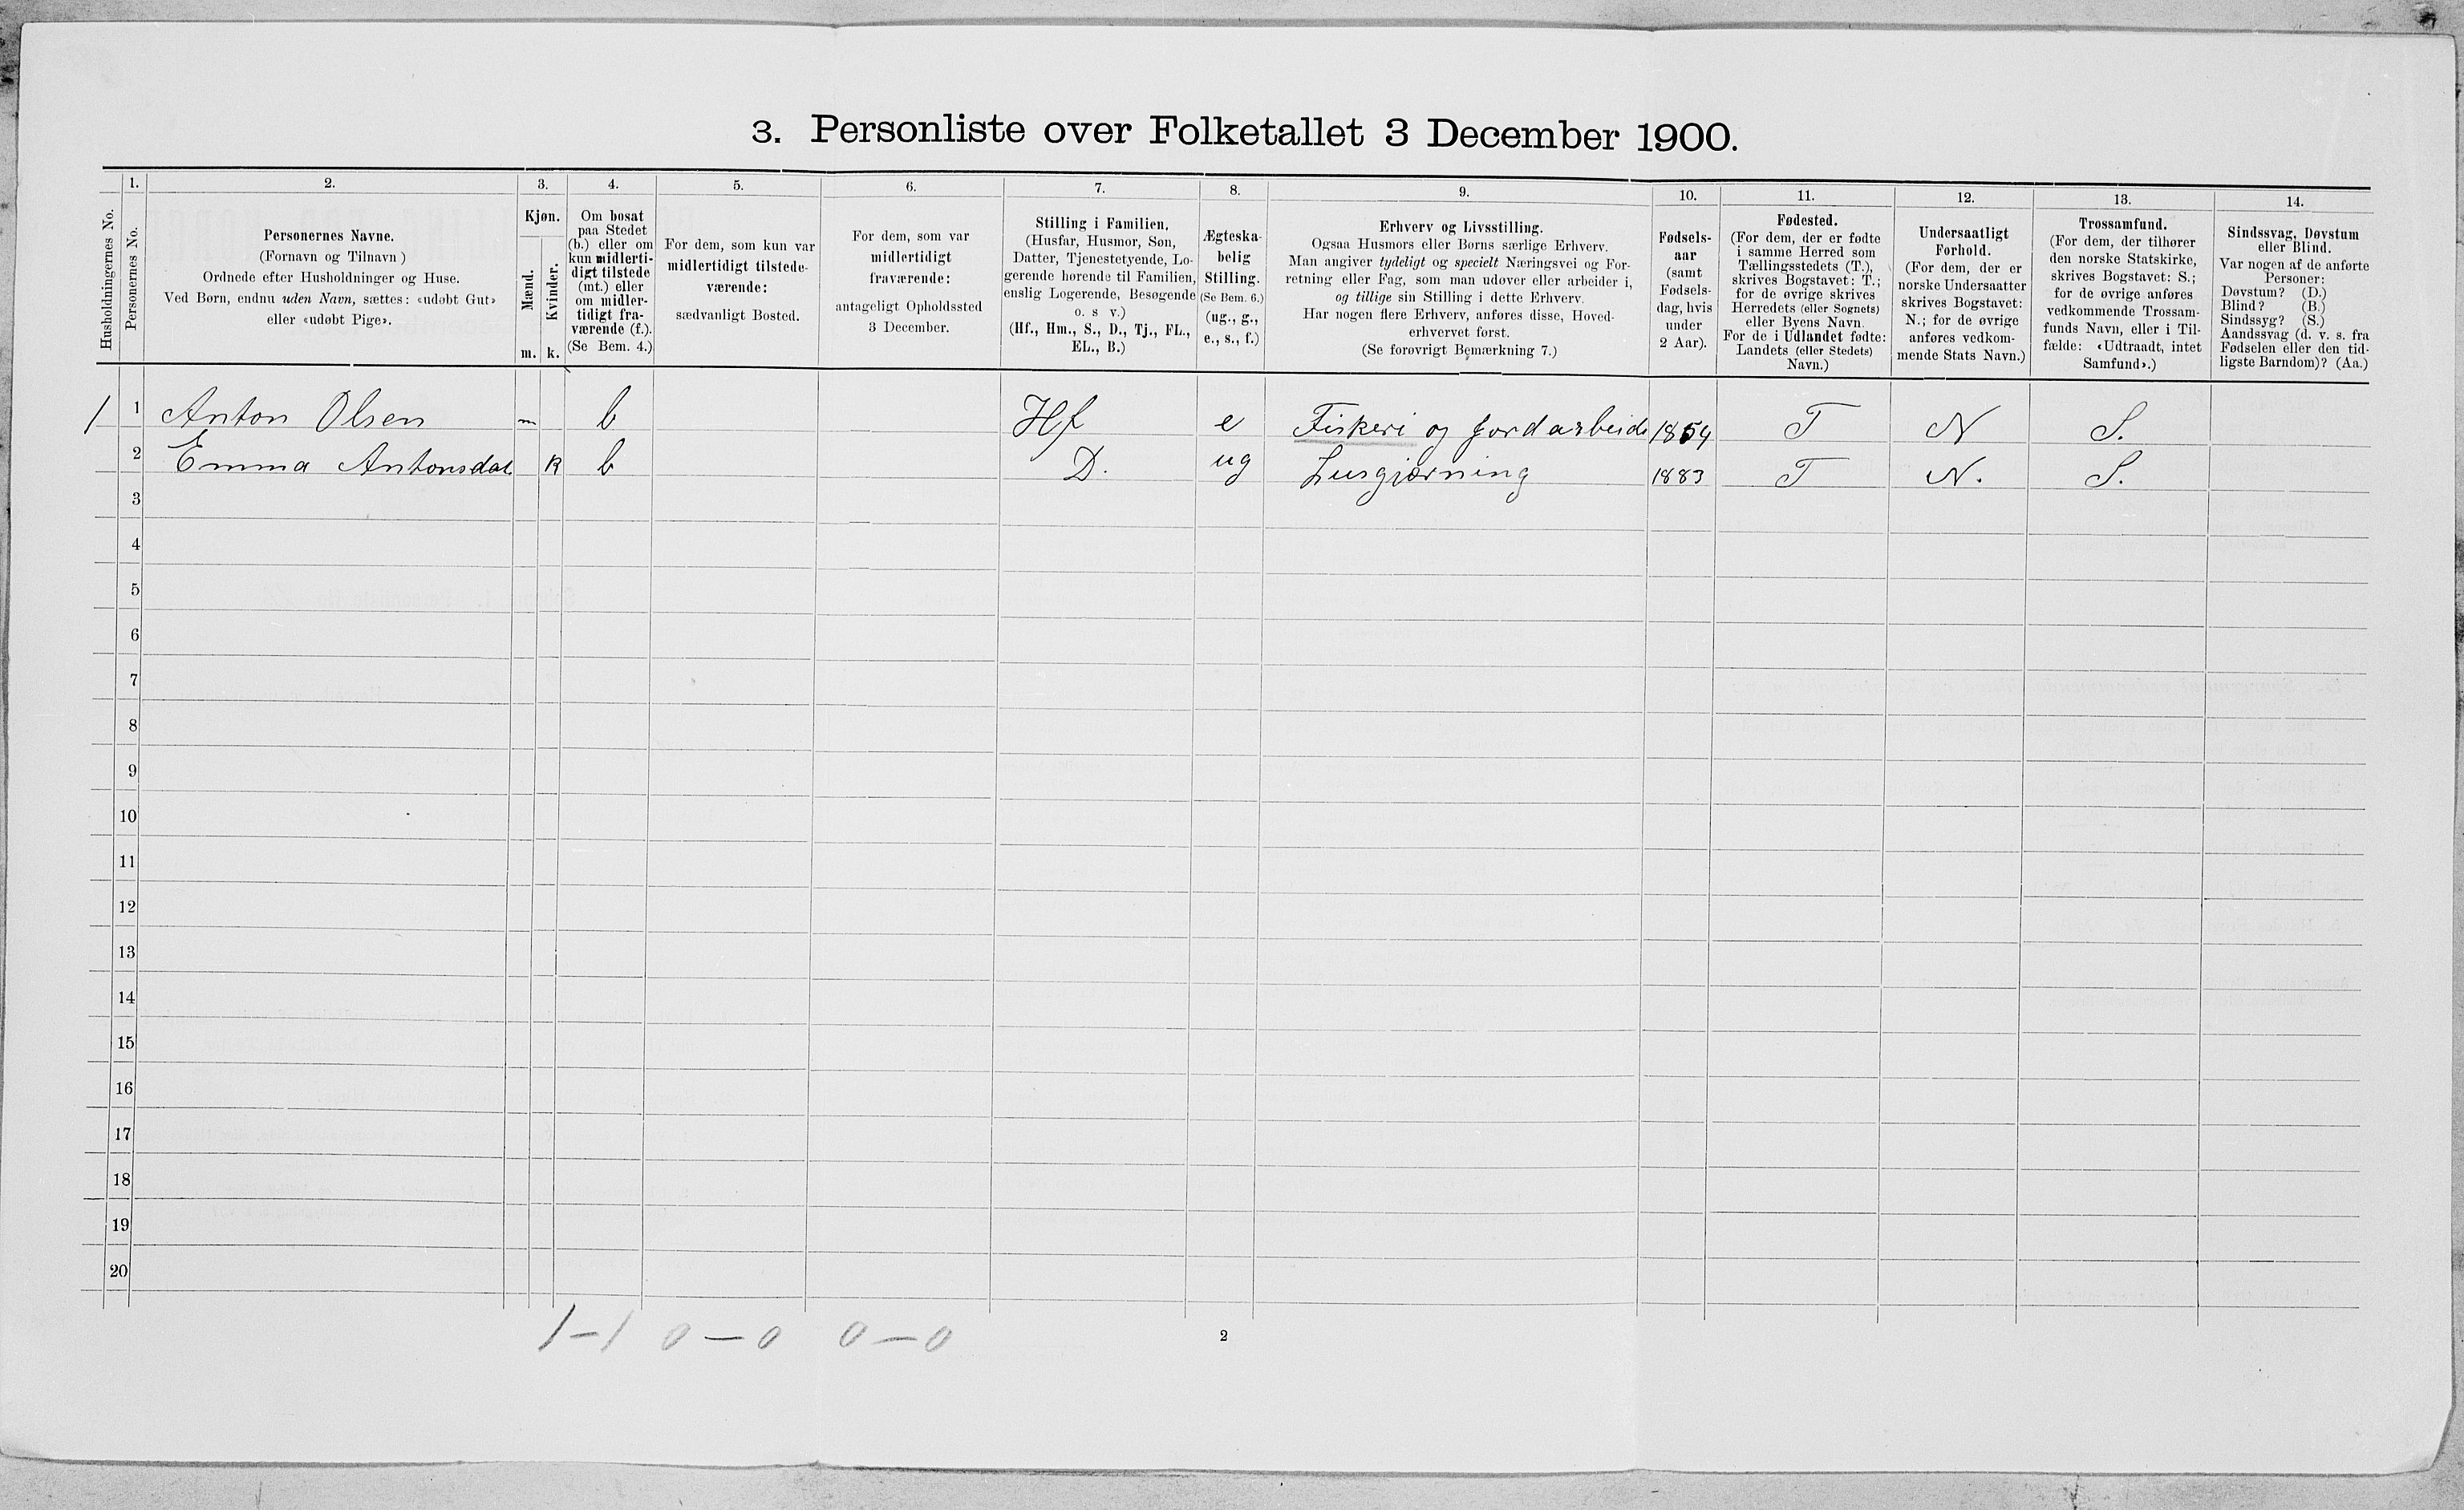 3. Personliste over Folketallet 3 December 1900.
Husholdningernes No.
1.
Personernes No.
2.
Personernes Navne.
(Fornavn og Tilnavn )
Ordnede efter Husholdninger og Huse.
Ved Børn, endnu uden Navn, sættes: «udøbt Gut»
eller «udøbt Pige».
3.
Kjøn.
Mænd.
Kvinder.
m. k.
4.
Om bosat
paa Stedet
(b.) eller om
kun midlerti-
digt tilstede
(mt.) eller
om midler-
tidigt fra-
værende (f.).
(Se Bem. 4.)
5.
For dem, som kun var
midlertidigt tilstede-
værende:
sædvanligt Bosted.
6.
For dem, som var
midlertidigt
fraværende:
antageligt Opholdssted
3 December.
7.
Stilling i Familien.
(Husfar, Husmor, Søn,
Datter, Tjenestetyende, Lo-
gerende hørende til Familien,
enslig Logerende, Besøgende
o. s v.)
(Hf., Hm., S., D., Tj., FL.,
EL., B.)
8.
Ægteska-
belig
Stilling.
(Se Bem. 6.)
(ug., g.,
e., s., f.)
9.
Erhverv og Livsstilling.
Ogsaa Husmors eller Børns særlige Erhverv.
Man angiver tydeligt og specielt Næringsvei og For-
retning eller Fag, som man udøver eller arbeider i,
og tillige sin Stilling i dette Erhverv.
Har nogen flere Erhverv, anføres disse, Hoved-
erhvervet først.
(Se forøvrigt Bemærkning 7.)
10.
Fødsels-
aar
(samt
Fødsels-
dag, hvis
under
2 Aar).
11.
Fødested.
(For dem, der er fødte
i samme Herred som
Tællingsstedets (T.),
skrives Bogstavet: T.;
for de øvrige skrives
Herredets (eller Sognets)
eller Byens Navn.
For de i Udlandet fødte:
Landets (eller Stedets)
Navn.)
12.
Undersaatligt
Forhold.
(For dem, der er
norske Undersaatter
skrives Bogstavet:
N.; for de øvrige
anføres vedkom-
mende Stats Navn.)
13.
Trossamfund.
(For dem, der tilhører
den norske Statskirke,
skrives Bogstavet: S.;
for de øvrige anføres
vedkommende Trossam-
funds Navn, eller i Til-
fælde: «Udtraadt, intet
Samfund».)
14.
Sindssvag, Døvstum
eller Blind.
Var nogen af de anførte
Personer:
Døvstum? (D.)
Blind? (B.)
Sindssyg? (S.)
Aandssvag (d. v. s. fra
Fødselen eller den tid-
ligste Barndom)? (Aa.)
1 1 Anton Olsen m b Hf e Fiskeri og jordarbeide 1854 T N S.
2 Emma Antonsdat. k b D. ug Husgjærning 1883 T N. S.
3
4
5
6
7
8
9
10
11
12
13
14
15
16
17
18
19
20
1–1 0–0 0–0
2